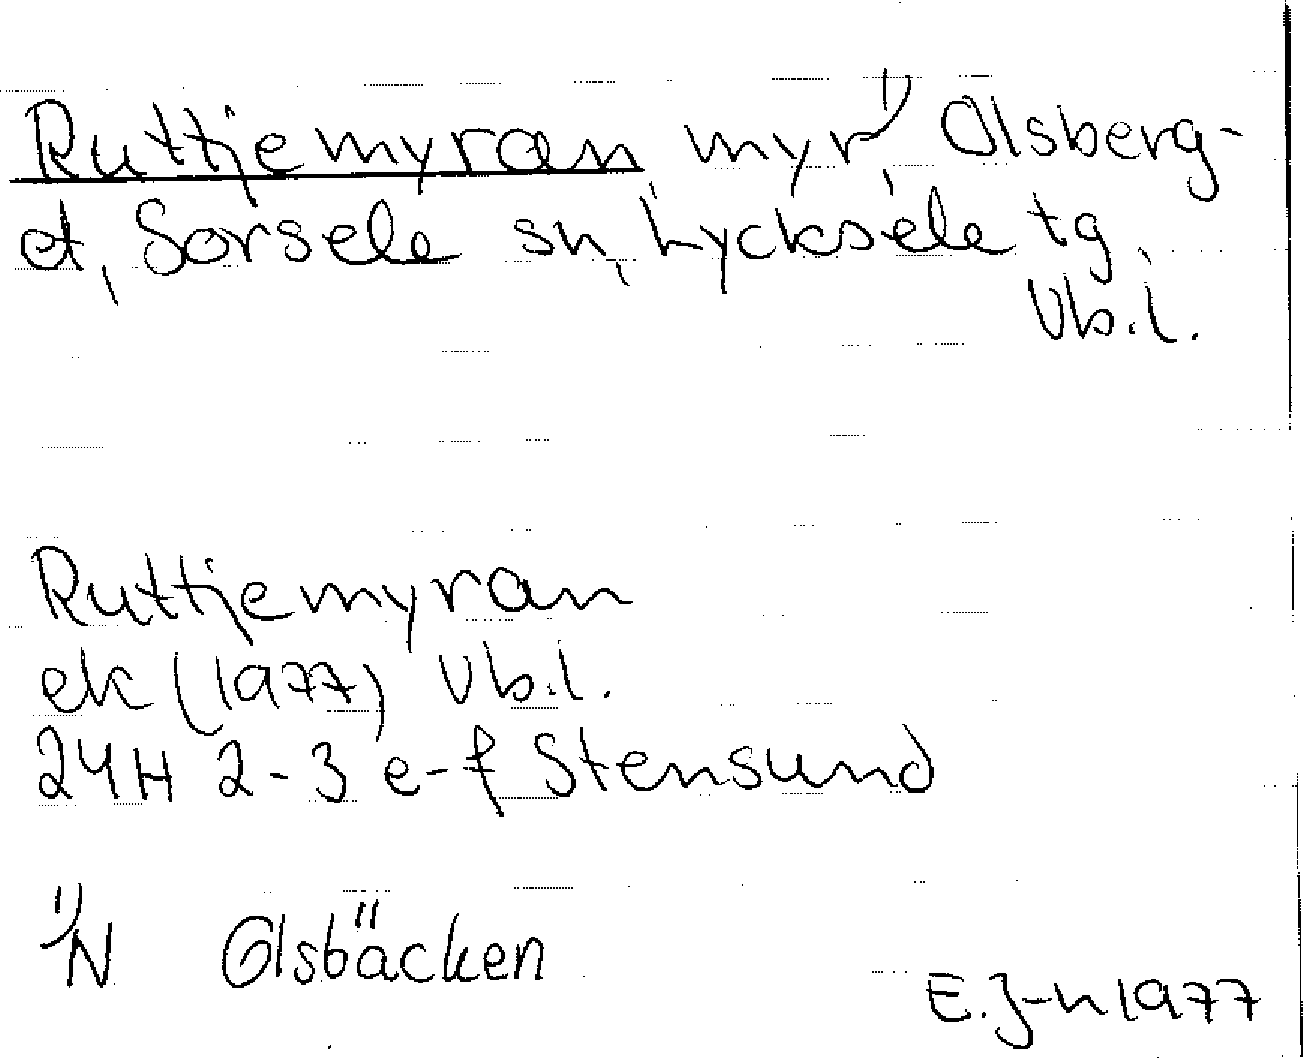 Ruttjemyran myr¹⁾ Olsberg-
et, Sorsele sn, Lycksele tg,
Vb.l.
Ruttjemyran
ek (1977) Vb.l.
24H 2-3 e-f Stensund
¹⁾N Olsbäcken
E.J-n 1977